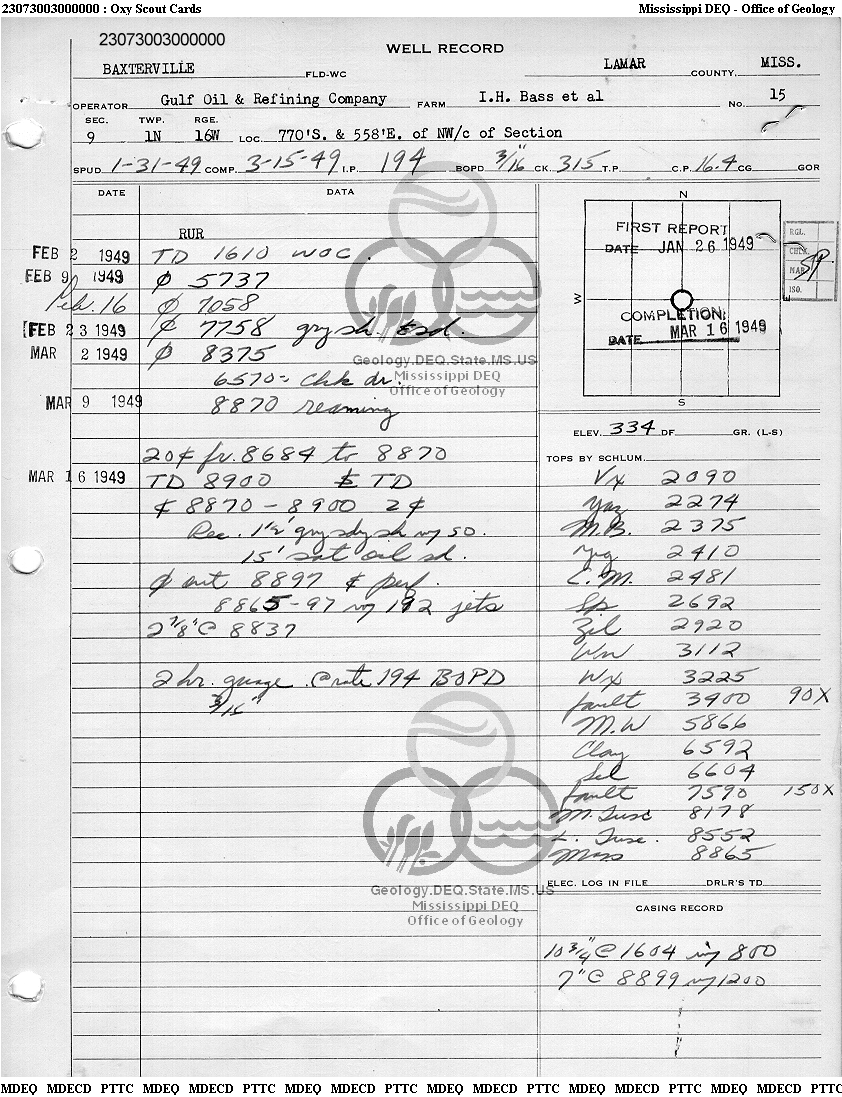 23073003000000 : Oxy Scout Cards Mississippi DEQ - Office of Geology
23073003000000
WELL RECORD
BAXTERVILLE FLD-WC LAMAR COUNTY, MISS.
OPERATOR Gulf Oil & Refining Company FARM I.H. Bass et al No. 15
SEC. TWP. RGE.
9 1N 16W LOC. 770'S. & 558'E. of NW/c of Section
SPUD 1-31-49 COMP. 3-15-49 I.P. 194 BOPD 3/16" CK. 315 T.P. C.P. 16.4 CG GOR
DATE DATA
RUR
FEB 2 1949 TD 1610 WOC.
FEB 9 1949 ₵ 5737
Feb. 16 ₵ 7058
FEB 23 1949 ₵ 7758 gry sh. & sd.
MAR 2 1949 ₵ 8375
6570 = Chk dr.
MAR 9 1949 8870 reaming
20 ₵ fr. 8684 to 8870
MAR 16 1949 TD 8900 TD
₵ 8870 - 8900 2 ₵
Rec. 1½' gry sdy sh w/ so.
15' sat oil sd.
₵ out 8897 ₵ perf.
8865-97 w/ 192 jets
2 7/8" @ 8837
2 hr. guage @ rate 194 BOPD
3/16"
N
W
S
FIRST REPORT
DATE JAN 26 1949
COMPLETION:
DATE MAR 16 1949
RGL.
CHLK.
MAR
ISO.
ELEV. 334 DF GR. (L-S)
TOPS BY SCHLUM.
Vx 2090
Yaz 2274
M.B. 2375
Yeg 2410
C.M. 2481
Sp 2692
Zil 2920
Wn 3112
Wx 3225
fault 3900 90X
M.W 5866
Clay 6592
Sel 6604
fault 7590 150X
M. Tusc 8178
L. Tusc. 8552
Mass 8865
ELEC. LOG IN FILE DRLR'S TD
CASING RECORD
10 3/4" @ 1604 w/ 800
7" @ 8899 w/ 1200
Geology.DEQ.State.MS.US
Mississippi DEQ
Office of Geology
Geology.DEQ.State.MS.US
Mississippi DEQ
Office of Geology
MDEQ MDECD PTTC MDEQ MDECD PTTC MDEQ MDECD PTTC MDEQ MDECD PTTC MDEQ MDECD PTTC MDEQ MDECD PTTC